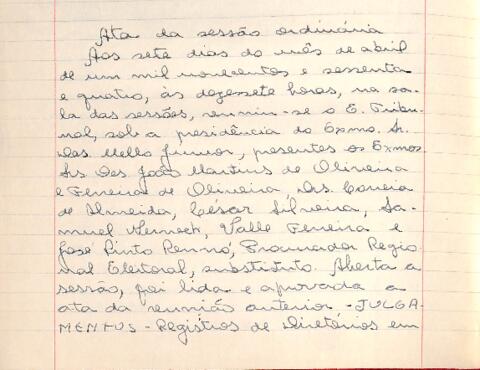 Ata da sessão ordinária
Aos sete dias do mês de abril
de um mil novecentos e sessenta
e quatro, às dezessete horas, na sa-
la das sessões, reuniu-se o E. Tribu-
nal, sob a presidência do Exmo. Sr.
Des. Mello Junior, presentes os Exmos.
Srs. Des. João Martins de Oliveira
e Ferreira de Oliveira, Drs. Correia
de Almeida, César Silveira, Sa-
muel Werneck, Valle Ferreira e
José Pinto Renno, Procurador Regio
nal Eleitoral, substituto. Aberta a
sessão, foi lida e aprovada a
ata da reunião anterior - JULGA-
MENTOS - Registros de Diretórios em